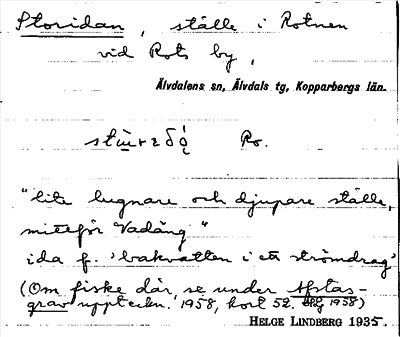 Storidan, ställe i Rotnen
vid Rots by,
Älvdalens sn, Älvdals tg, Kopparbergs län.
Ro.
"lite lugnare och djupare ställe,
mittför Vadäng"
ida f. 'bakvatten i ett strömdrag'
(Om fiske där, se under Afstas-
grav uppteckn. 1958, kort 52. 1958)
HELGE LINDBERG 1935.